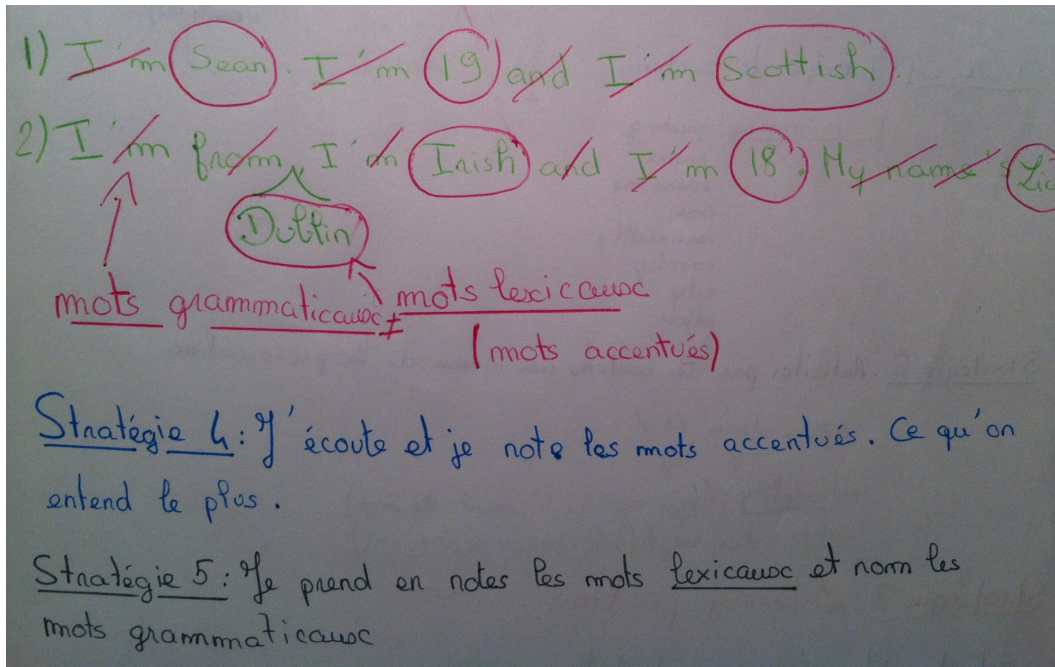 1) I'm Sean. I'm 19 and I'm Scottish.
2) I'm from, I'm Irish and I'm 18. My name's
Dublin
mots grammaticaux ≠ mots lexicaux
(mots accentués)
Stratégie 4 : J'écoute et je note les mots accentués. Ce qu'on
entend le plus.
Stratégie 5 : Je prend en notes les mots lexicaux et nom les
mots grammaticaux